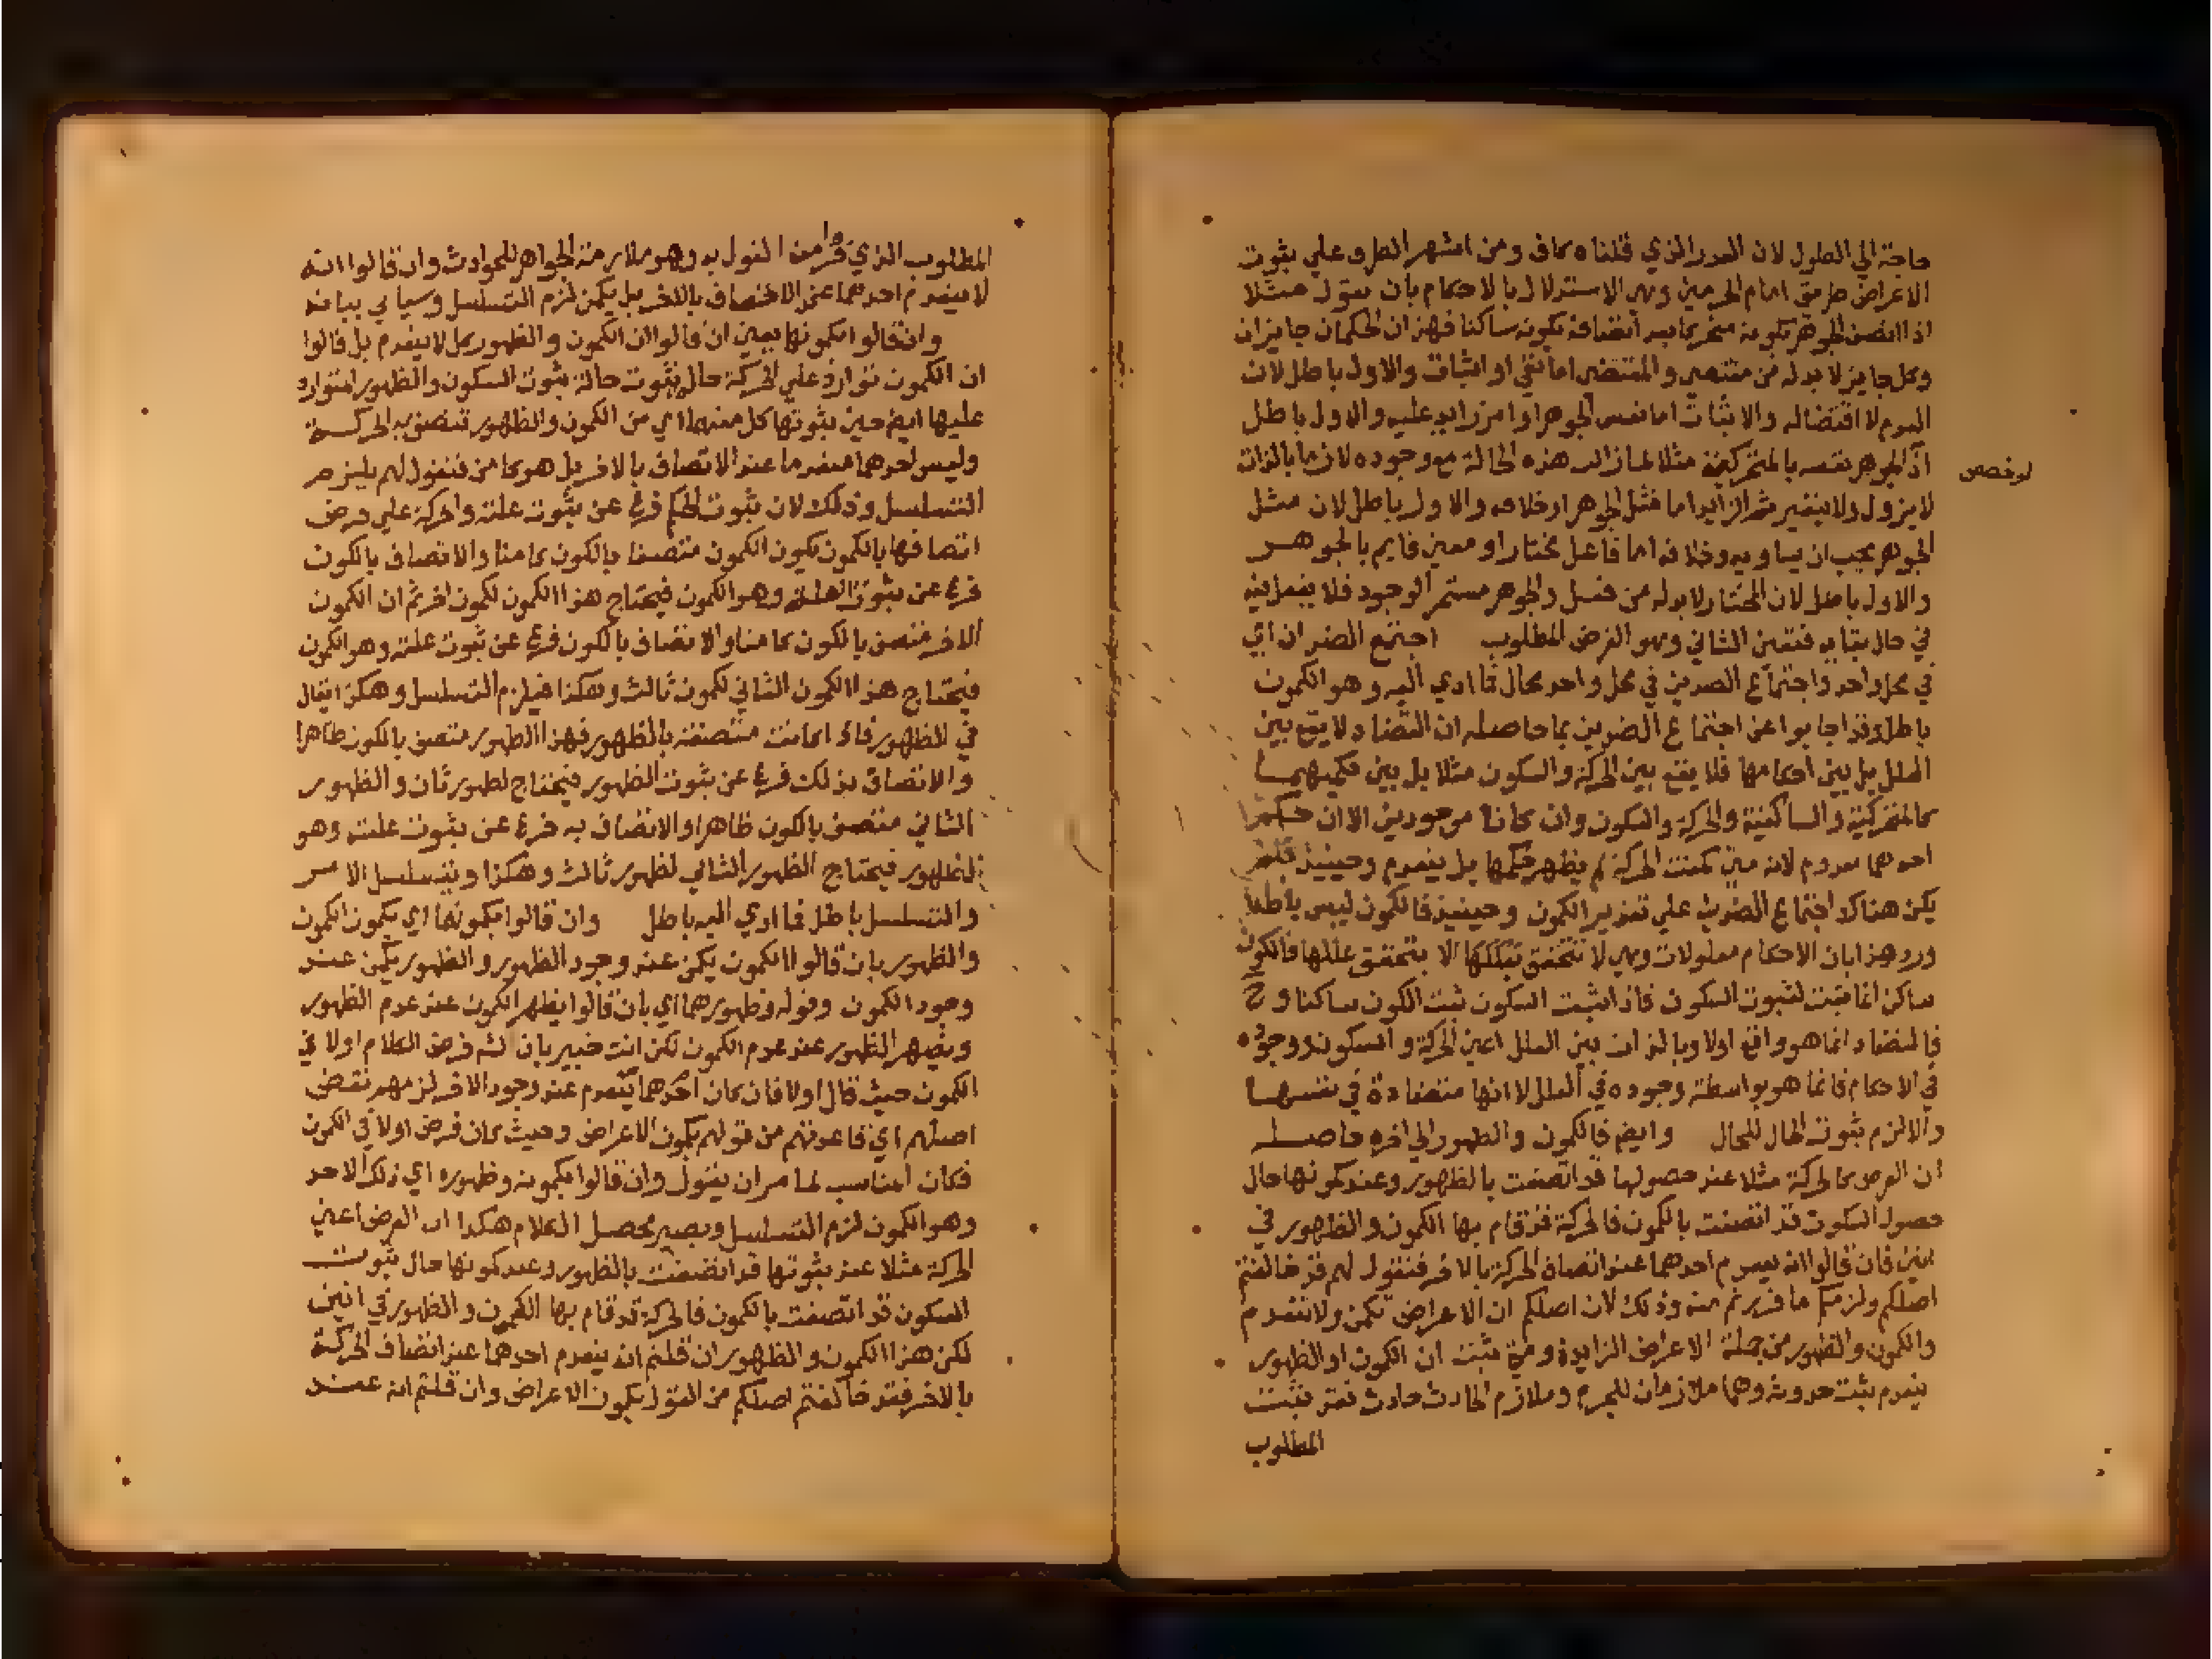 حاجة الي الطول لان القدر الذي قلناه كاف ومن اشهر الطرق علي ثبوت
الاعراض طريق امام الحرمين وهي الاستدلال بالاحكام بان يقول مثلا
اذا اتصف الجوهر بكونه متحركا بعد اتصافه بكونه ساكنا فهذان الحكمان جايزان
وكل جايز لا بد له من مقتضي والمقتضي اما نفي او اثبات والاول باطل لان
العدم لا اقتضا له والاثبات اما نفس الجوهر او امر زايد عليه والاول باطل
لو خصص
اذ الجوهر نفسه بالمتحركية مثلا لما زالت هذه الحالة مع وجوده لان ما بالذات
لا يزول ولا يتغير ثم الزايد اما مثل الجوهر او خلافه والاول باطل لان مثل
الجوهر يجب ان يساويه وخلافه اما فاعل مختار او معني قايم بالجوهر
والاول باطل لان المختار لا بد له من فعل والجوهر مستمر الوجود فلا يفعل فيه
في حال بقايه فتعين الثاني وهو الغرض المطلوب اجتمع الضدان اي
في محل واحد واجتماع الضدين في محل واحد محال فما ادي اليه وهو الكمون
باطل وقد اجابوا عن اجتماع الضدين بما حاصله ان التضاد لا يقع بين
العلل بل بين احكامها فلا يقع بين الحركة والسكون مثلا بل بين حكميهما
كالمتحركية والساكنية والحركة والسكون وان كانا موجودين الا ان حكم
احدهما معدوم لانه متي كمنت الحركة لم يظهر حكمها بل ينعدم وحينيذ فلم
يكن هناك اجتماع الضدين علي تقدير الكمون وحينيذ فالكمون ليس باطلا
ورد هذا بان الاحكام معلولات وهي لا تتحقق الا بتحقق عللها فالكون
ساكن انما يثبت لثبوت السكون فاذا ثبت السكون ثبت الكون ساكنا وح
فالتضاد انما هو واقع اولا وبالذات بين العلل اعني الحركة والسكون ووجوده
في الاحكام فانما هو بواسطة وجوده في العلل لا انها متضادة في نفسها
والا لزم ثبوت الحال للحال وايضا فالكمون والظهور الي اخره حاصله
ان العرض كالحركة مثلا عند حصولها قد اتصفت بالظهور وعند كمونها حال
حصول السكون قد اتصفت بالكمون فالحركة قد قام بها الكمون والظهور في
انين فان قالوا انه ينعدم احدهما عند اتصاف الحركة بالاخر فنقول لهم قد خالفتم
اصلكم ولزمكم ما فررتم منه وذلك لان اصلكم ان الاعراض تكمن ولا تنعدم
والكمون والظهور من جملة الاعراض الزايدة ومتي ثبت ان الكمون او الظهور
ينعدم ثبت حدوثه وهما ملازمان للجرم وملازم الحادث حادث فقد ثبت
المطلوب
المطلوب الذي فروا من القول به وهو ملازمة الجواهر للحوادث وان قالوا انه
لا ينعدم احدهما عند الاتصاف بالاخر بل يكمن لزم التسلسل وسياتي بيانه
وان قالوا بكمونها يعني ان قالوا ان الكمون والظهور كل لا ينعدم بل قالوا
ان الكمون توارد علي الحركة حال ثبوت حالة ثبوت السكون والظهور توارد
عليها ايضا حين ثبوتها كل منهما اي من الكمون والظهور تتصف به الحركة
وليس احدهما منعدما عند الاتصاف بالاخر بل هو كامن فنقول لهم يلزم
التسلسل وذلك لان ثبوت الحكم فرع عن ثبوت علته والحركة علي فرض
اتصافها بالكمون يكون الكمون متصفا بالكون كامنا والاتصاف بالكون
فرع عن ثبوت العلة وهو الكمون فيحتاج هذا الكمون لكمون اخر ثم ان الكمون
الاخر متصف بالكون كامنا والاتصاف بالكون فرع عن ثبوت علته وهو الكمون
فيحتاج هذا الكمون الثاني لكمون ثالث وهكذا فيلزم التسلسل وهكذا يقال
في الظهور فاذا كانت متصفة بالظهور فهذا الظهور متصف بالكون ظاهرا
والاتصاف بذلك فرع عن ثبوت الظهور فيحتاج لظهور ثان والظهور
الثاني متصف بالكون ظاهرا والاتصاف به فرع عن ثبوت علته وهو
الظهور فيحتاج الظهور الثاني لظهور ثالث وهكذا ويتسلسل الامر
والتسلسل باطل فما ادي اليه باطل وان قالوا بكمونها اي بكمون الكمون
والظهور بان قالوا الكمون يكمن عند وجود الظهور والظهور يكمن عند
وجود الكمون وقوله وظهورهما اي بان قالوا يظهر الكمون عند عدم الظهور
ويظهر الظهور عند عدم الكمون لكن انت خبير بان انه فرض الكلام اولا في
الكمون حيث قال اولا فان كان احدهما ينعدم عند وجود الاخر لزمهم نقض
اصلهم اي قاعدتهم من قولهم بكمون الاعراض وحيث كان فرض اولا في الكمون
فكان المناسب لما مر ان يقول وان قالوا بكمونه وظهوره اي ذلك الاحد
وهو الكمون لزم التسلسل ويصير محصل الكلام هكذا ان العرض اعني
الحركة مثلا عند ثبوتها قد اتصفت بالظهور وعند كمونها حال ثبوت
السكون قد اتصفت بالكمون فالحركة قد قام بها الكمون والظهور في انين
لكن هذا الكمون والظهور ان قلتم انه ينعدم احدهما عند اتصاف الحركة
بالاخر فقد خالفتم اصلكم من القول بكمون الاعراض وان قلتم انه عند